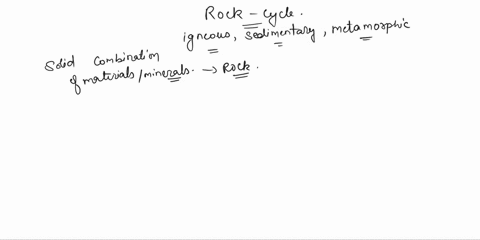 Rock-cycle.
igneous, sedimentary, metamorphic
Solid combination
of materials/minerals. → Rock.